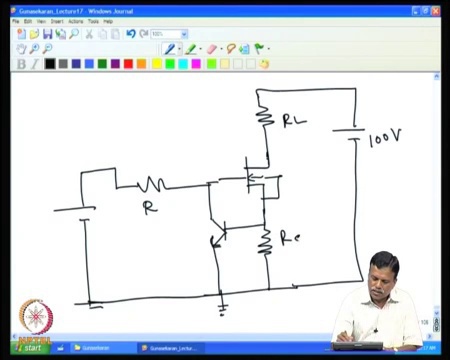 Gunasekaran_Lecture17 - Windows Journal
File Edit View Insert Actions Tools Help
100%
B I
RL
100V
R
Re
start
Gunasekaran
Gunasekaran_Lectur...